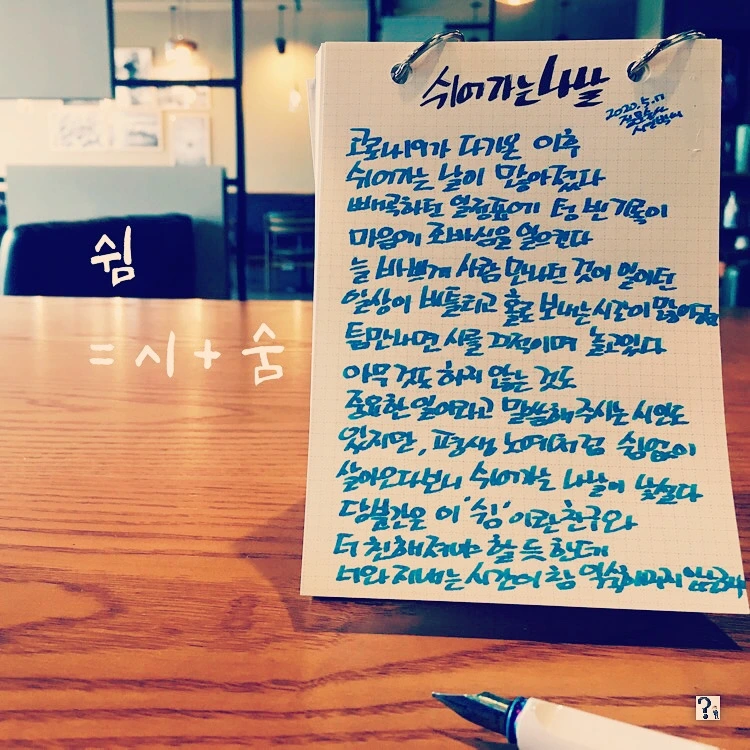 쉼
= 시 + 숨
쉬어가는 나날
2020.5.17
코로나19가 다가온 이후
쉬어가는 날이 많아졌다
빼곡하던 열림표에 텅 빈 기록이
마음에 조바심을 일으킨다
늘 바쁘게 사람 만나던 것이 일이던
일상이 비틀리고 홀로 보내는 시간이 많아졌다
틈만나면 시를 끄적이며 놀고있다
아무것도 하지 않는 것도
중요한 일이라고 말씀해주시는 시인도
있지만, 평생 노예처럼 쉼없이
살아오다보니 쉬어가는 나날이 낯설다
당분간은 이 '쉼'이란 친구와
더 친해져야 할 듯 한데
너와 지내는 시간이 참
?